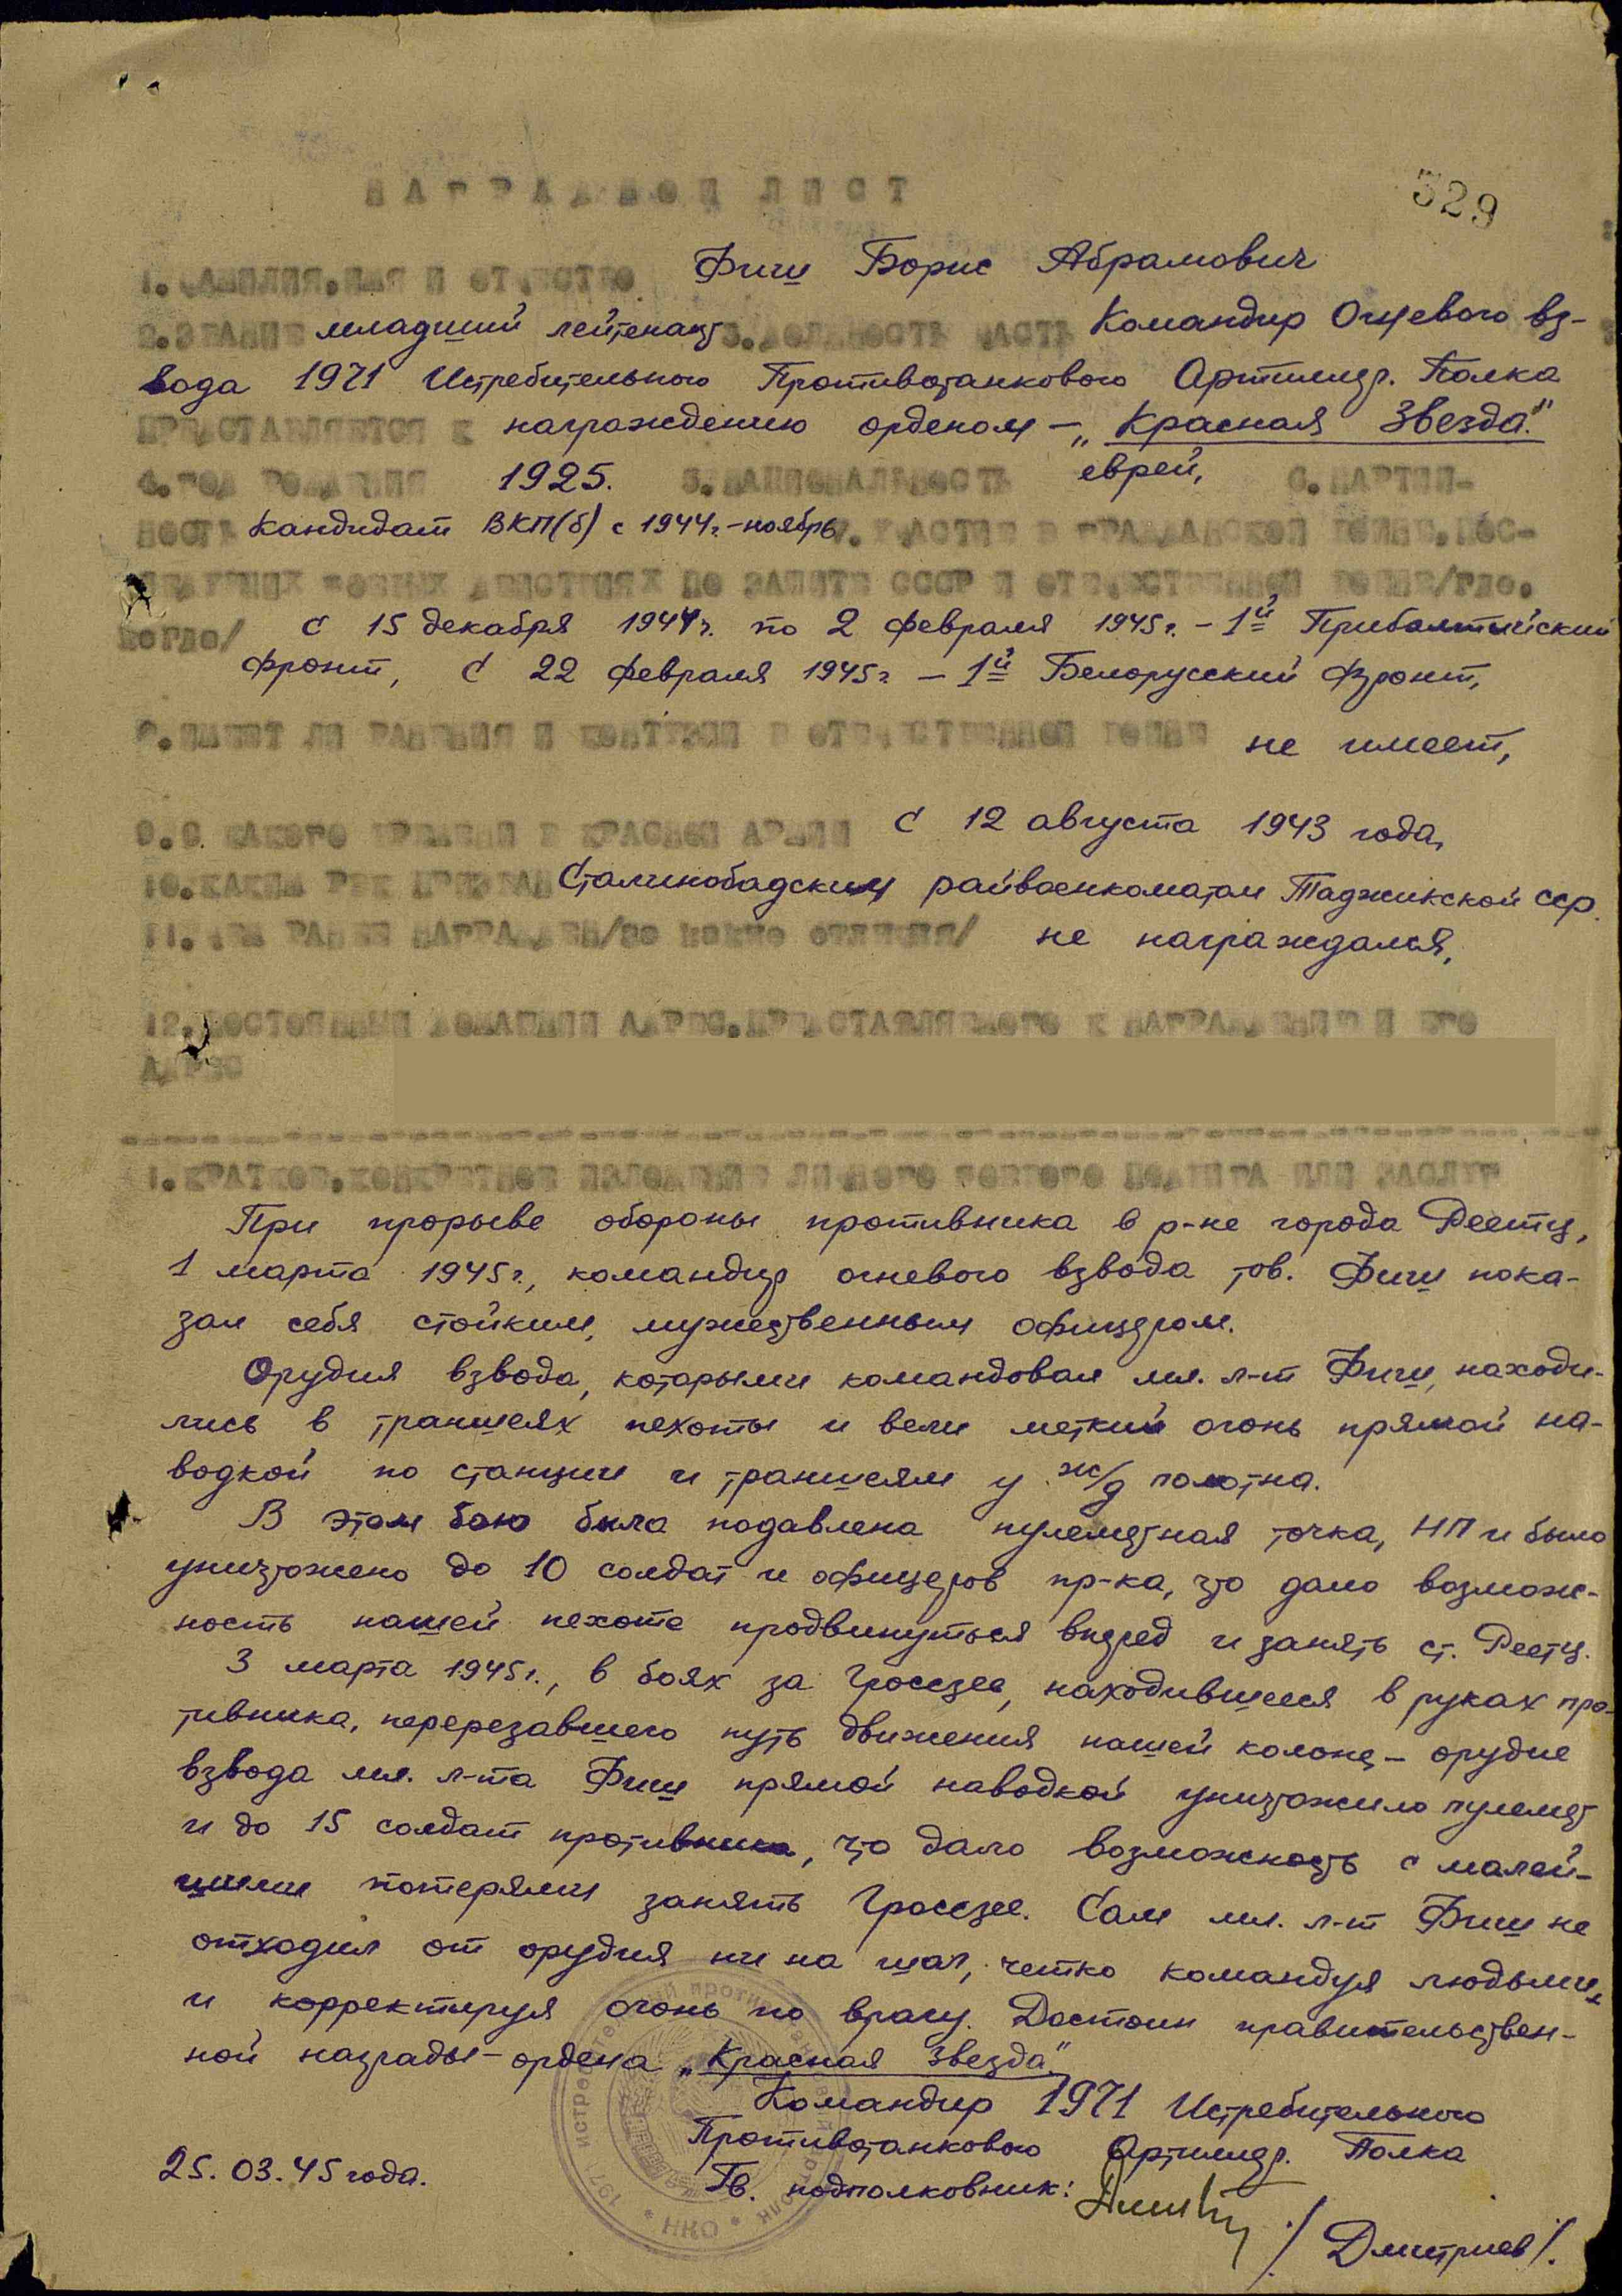 НАГРАДНОЙ ЛИСТ
329
1. ФАМИЛИЯ, ИМЯ И ОТЧЕСТВО Фиш Борис Абрамович
2. ЗВАНИЕ младший лейтенант 3. ДОЛЖНОСТЬ ЧАСТЬ Командир Огневого вз-
вода 1971 Истребительного Противотанкового Артиллер. Полка
ПРЕДСТАВЛЯЕТСЯ К награждению орденом – „Красная Звезда."
4. ГОД РОЖДЕНИЯ 1925. 5. НАЦИОНАЛЬНОСТЬ еврей, 6. ПАРТИЙ-
НОСТЬ Кандидат ВКП(б) с 1944г.-ноябрь 7. УЧАСТИЕ В ГРАЖДАНСКОЙ ВОЙНЕ, ПОС-
ЛЕДУЮЩИХ БОЕВЫХ ДЕЙСТВИЯХ ПО ЗАЩИТЕ СССР И ОТЕЧЕСТВЕННОЙ ВОЙНЕ/ГДЕ,
КОГДА/ С 15 декабря 1944г. по 2 февраля 1945г. – 1й Прибалтийский
фронт, С 22 февраля 1945г – 1й Белорусский фронт,
8. ИМЕЕТ ЛИ РАНЕНИЯ И КОНТУЗИИ В ОТЕЧЕСТВЕННОЙ ВОЙНЕ не имеет,
9. С КАКОГО ВРЕМЕНИ В КРАСНОЙ АРМИИ С 12 августа 1943 года,
10. КАКИМ РВК ПРИЗВАН Сталинобадским райвоенкоматом Таджикской сср.
11. ЧЕМ РАНЕЕ НАГРАЖДЕН/за какие отличия/ не награждался,
12. ПОСТОЯННЫЙ ДОМАШНИЙ АДРЕС, ПРЕДСТАВЛЯЕМОГО К НАГРАЖДЕНИЮ И ЕГО
АДРЕС
1. КРАТКОЕ, КОНКРЕТНОЕ ИЗЛОЖЕНИЕ ЛИЧНОГО БОЕВОГО ПОДВИГА ИЛИ ЗАСЛУГ
При прорыве обороны противника в р-не города Реетц,
1 марта 1945г., командир огневого взвода тов. Фиш пока-
зал себя стойким, мужественным офицером.
Орудия взвода, которыми командовал мл. л-т Фиш, находи-
лись в траншеях пехоты и вели меткий огонь прямой на-
водкой по станции и траншеям у ж/д полотна.
В этом бою была подавлена пулеметная точка, НП и было
уничтожено до 10 солдат и офицеров пр-ка, что дало возмож-
ность нашей пехоте продвинуться вперед и занять ст. Реетц.
3 марта 1945г., в боях за Гроссзее, находившееся в руках про-
тивника, перерезавшего путь движения нашей колонн – орудие
взвода мл. л-та Фиш прямой наводкой уничтожило пулемет
и до 15 солдат противника, что дало возможность с малей-
шими потерями занять Гроссзее. Сам мл. л-т Фиш не
отходил от орудия ни на шаг, четко командуя людьми,
и корректируя огонь по врагу. Достоин правительствен-
ной награды – ордена „Красная Звезда".
Командир 1971 Истребительного
Противотанкового Артиллер. Полка
25.03.45 года. Гв. подполковник:
/Дмитриев/.